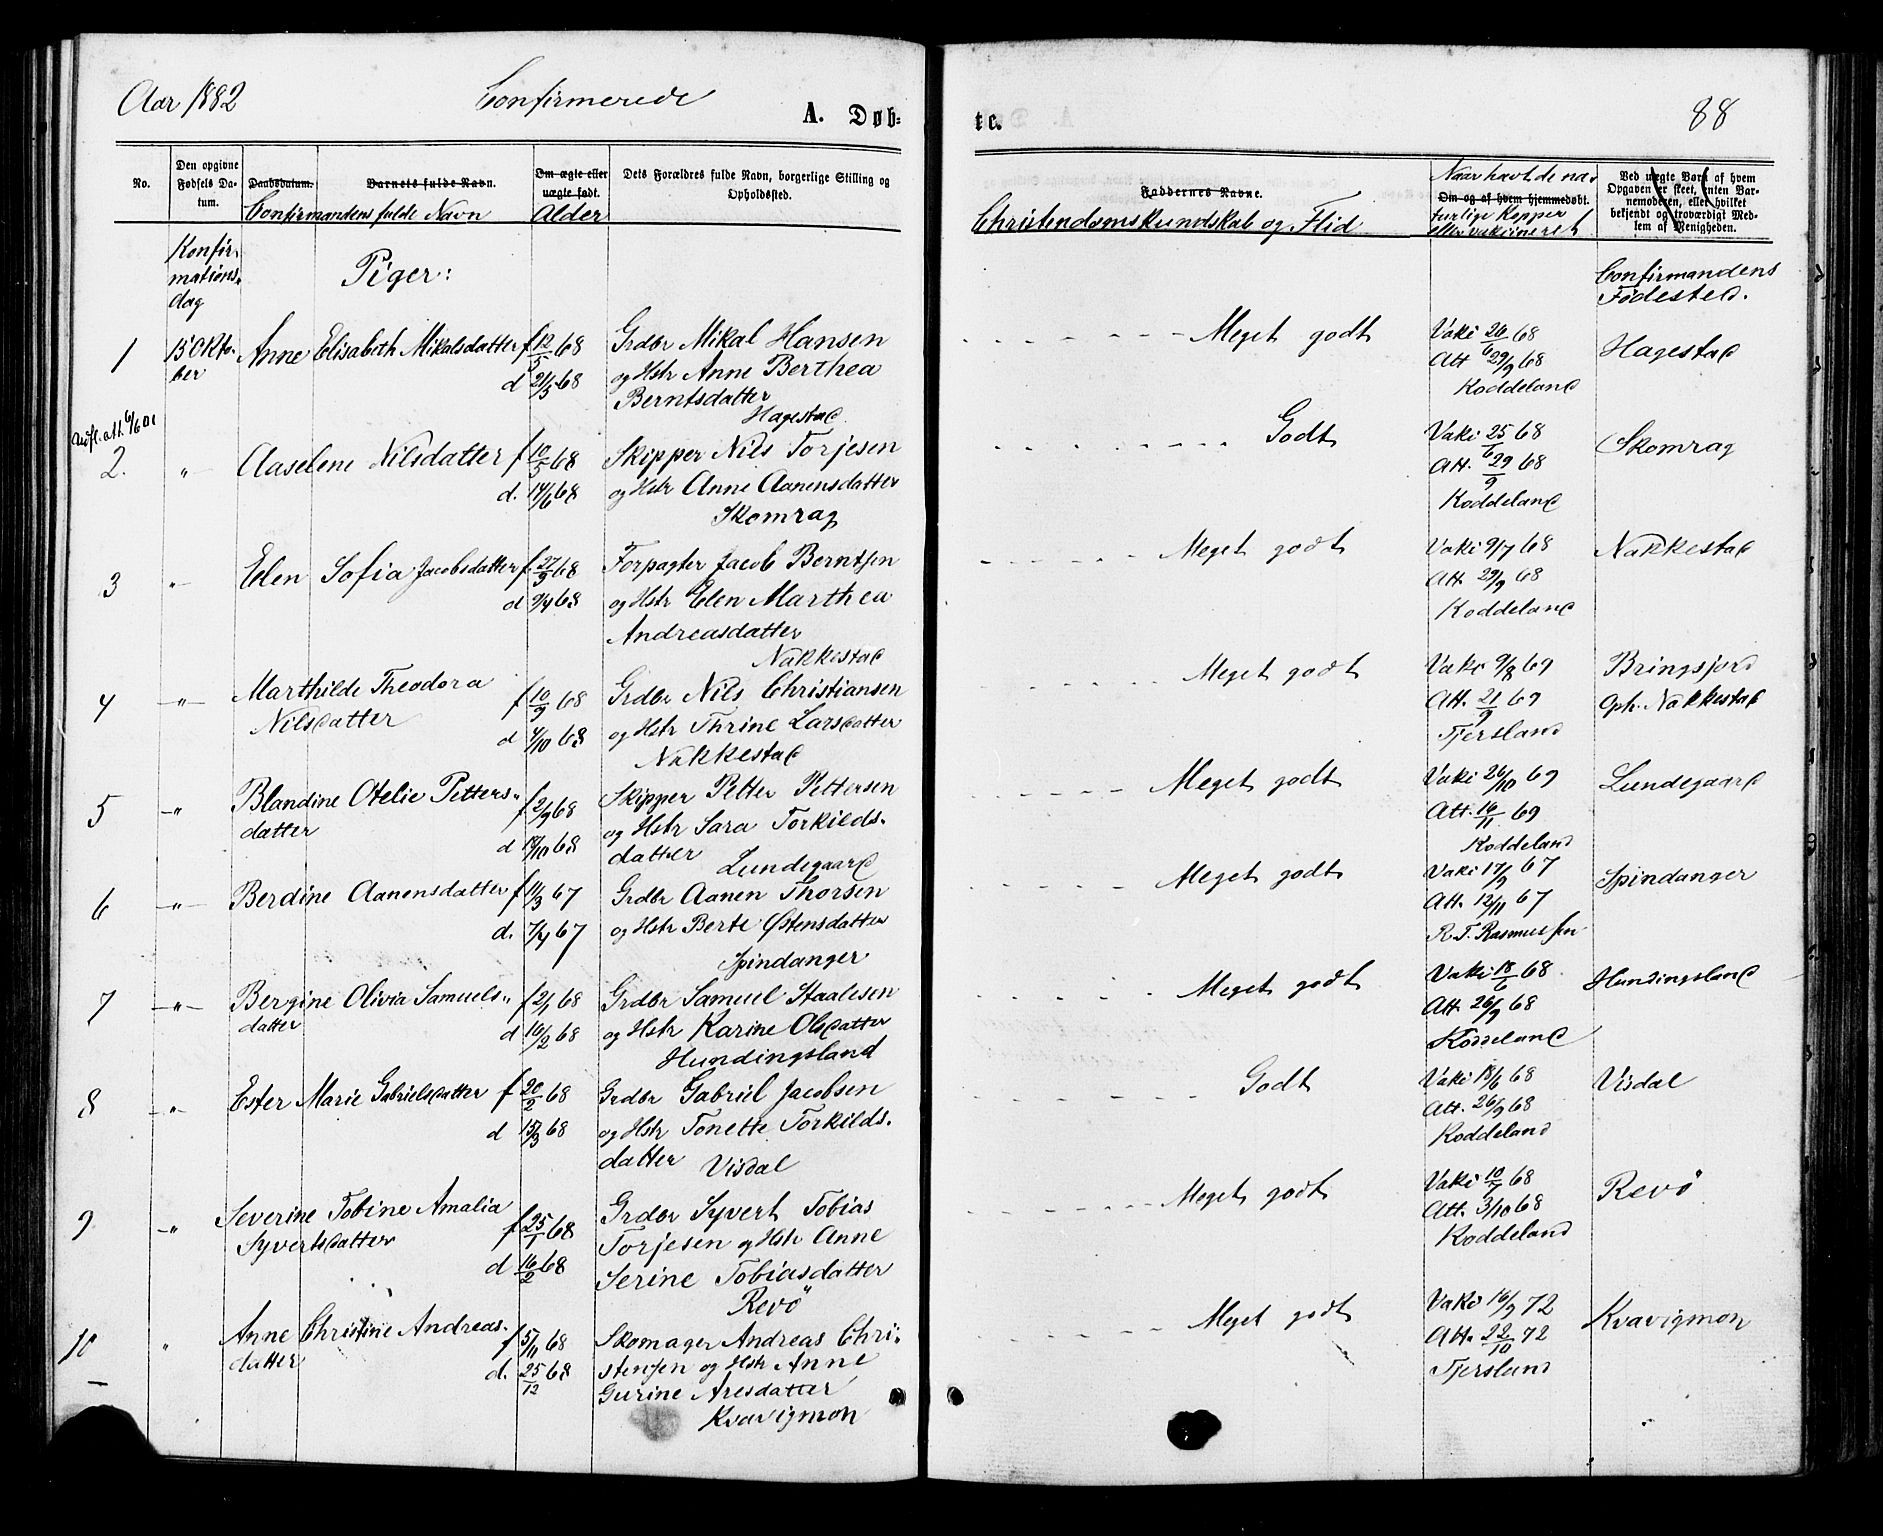 Aar 1882
Confirmerede
A. Døb-
te.
88
No.
Den opgivne Fødsels Da-tum.
Daabsdatum.
Barnets fulde Navn.
Confirmandens fulde Navn
Om ægte eller uægte født.
Alder
Dets Forældres fulde Navn, borgerlige Stilling og Opholdssted.
Faddernes Navne.
Christendomskundskab og Flid
Naar havt de na-
Om og af hvem hjemmedøbt.
turlige Kopper
eller vakcineret
Ved uægte Børn af hvem Opgaven er skeet, enten Bar-nemoderen, eller hvilket bekjendt og troværdigt Med-lem af Menigheden.
Konfir-
mations-
dag
Piger:
Confirmandens
Fødested.
1 15 Okto- Anne Elisabeth Mikalsdatter f 12/5 68 Grdbr Mikal Hansen Meget godt Vaki 26/6 68 Hagestad
ber d 21/5 68 og Hstr Anne Berthea Att 29/9 68
Berntsdatter Koddeland
Hagestad
Udfl. att. 6/6 01
2. " Aaselene Nilsdatter f 10/5 68 Skipper Nils Torjesen Godt Vaki 25/6 68 Skomrag
d. 14/6 68 og Hstr Anne Aanensdatter Att. 29/9 68
Skomrag Koddeland
3 " Elen Sofia Jacobsdatter f. 27/9 68 Forpagter Jacob Berntsen Meget godt Vaki 9/7 68 Nakkestad
d 68 og Hstr Elen Marthea Att. 29/9 68
Andreasdatter Koddeland
Nakkestad
4 " Marthilde Theodora f 10/9 68 Grdbr Nils Christiansen Meget godt Vaki 9/8 69 Bringsjord
Nilsdatter d 4/10 68 og Hstr Thrine Larsdatter Att. 21/9 69 Oph. Nakkestad
Nakkestad Tjersland
5 " Blandine Otelie Petters- f 2/9 68 Skipper Petter Pettersen Meget godt Vaki 26/10 69 Lundegaard
datter d 18/10 68 og Hstr Sara Torkilds- Att. 16/11 69
datter Lundegaard Koddeland
6 " Berdine Aanensdatter f 11/3 67 Grdbr Aanen Thorsen Meget godt Vaki 17/9 67 Spindanger
d. 7/4 67 og Hstr Berte Østensdatter Att. 12/11 67
Spindanger R. T. Rasmussen
7 " Bergine Olivia Samuels- f 2/1 68 Grdbr Samuel Staalesen Meget godt Vaki 18/6 68 Hundingsland
datter d 16/2 68 og Hstr Karine Olsdatter Att. 26/9 68
Hundingsland Koddeland
8 " Ester Marie Gabrielsdatter f 20/2 68 Grdbr Gabriel Jacobsen Godt Vaki 18/6 68 Visdal
d 15/3 68 og Hstr Tonette Torkilds- Att. 26/9 68
datter Visdal Koddeland
9 " Severine Tobine Amalia f 25/1 68 Grdbr Syvert Tobias Meget godt Vaki 10/7 68 Revö
Syvertsdatter d 16/2 68 Torjesen og Hstr Anne Att. 3/10 68
Serine Tobiasdatter Koddeland
Revö
10 " Anne Christine Andreas- f 5/11 68 Skomager Andreas Chri- Meget godt Vaki 16/9 72 Kvavigmon
datter d. 25/12 68 stensen og Hstr Anne Att. 22/10 72
Gurine Aresdatter Tjersland
Kvavigmon